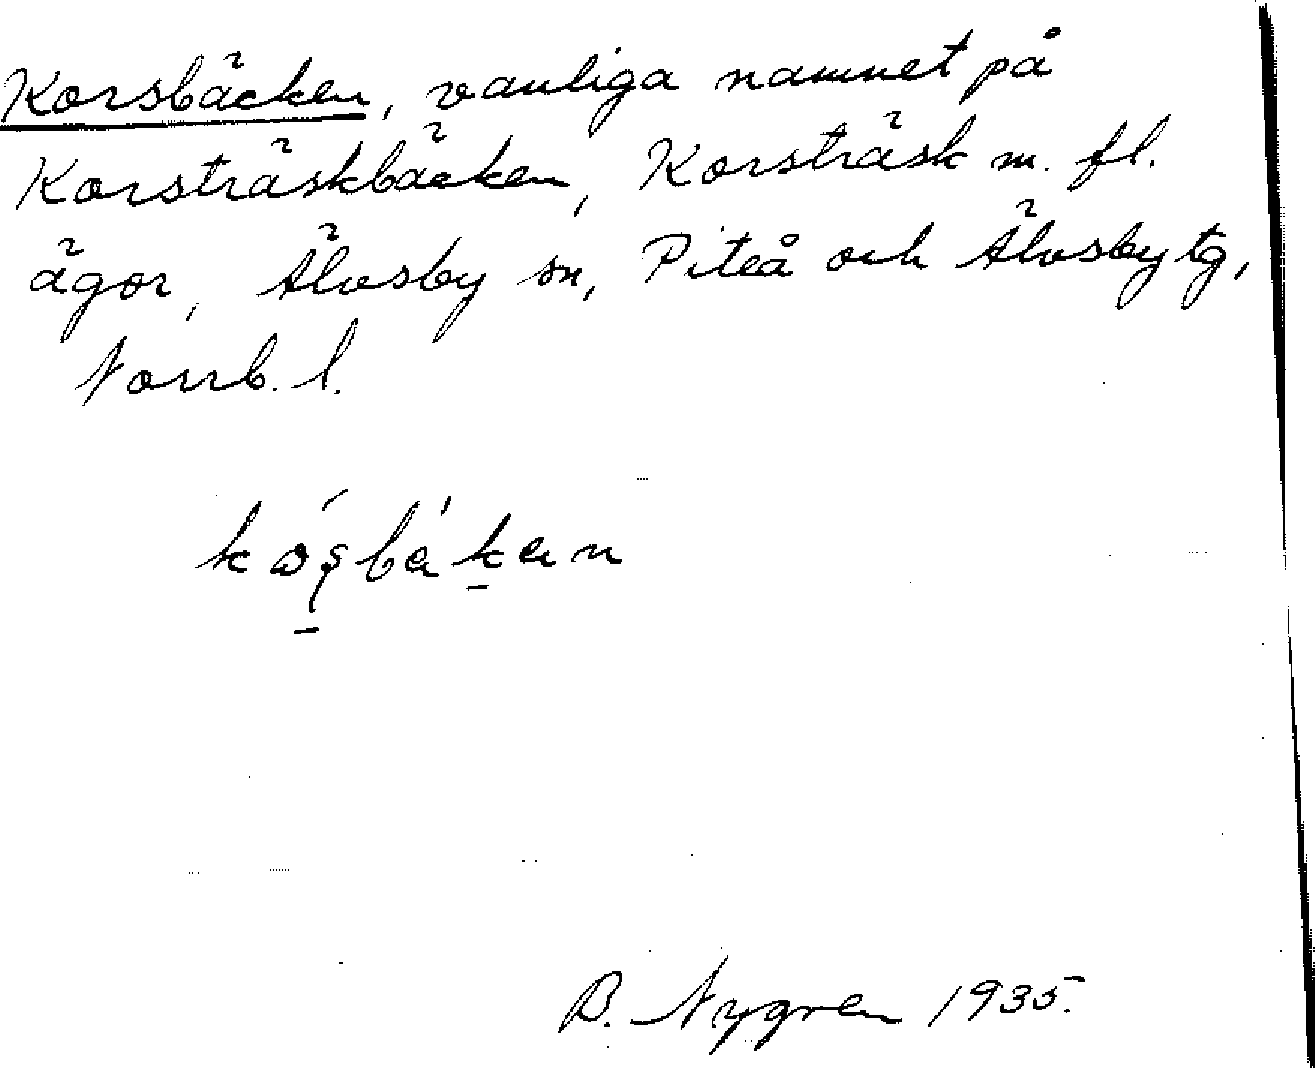 Korsbäcken, vanliga namnet på
Korsträskbäcken, Korsträsk m. fl.
ägor, Älvsby sn, Piteå och Älvsby tg,
Norrb. l.
B. Nygren 1935.